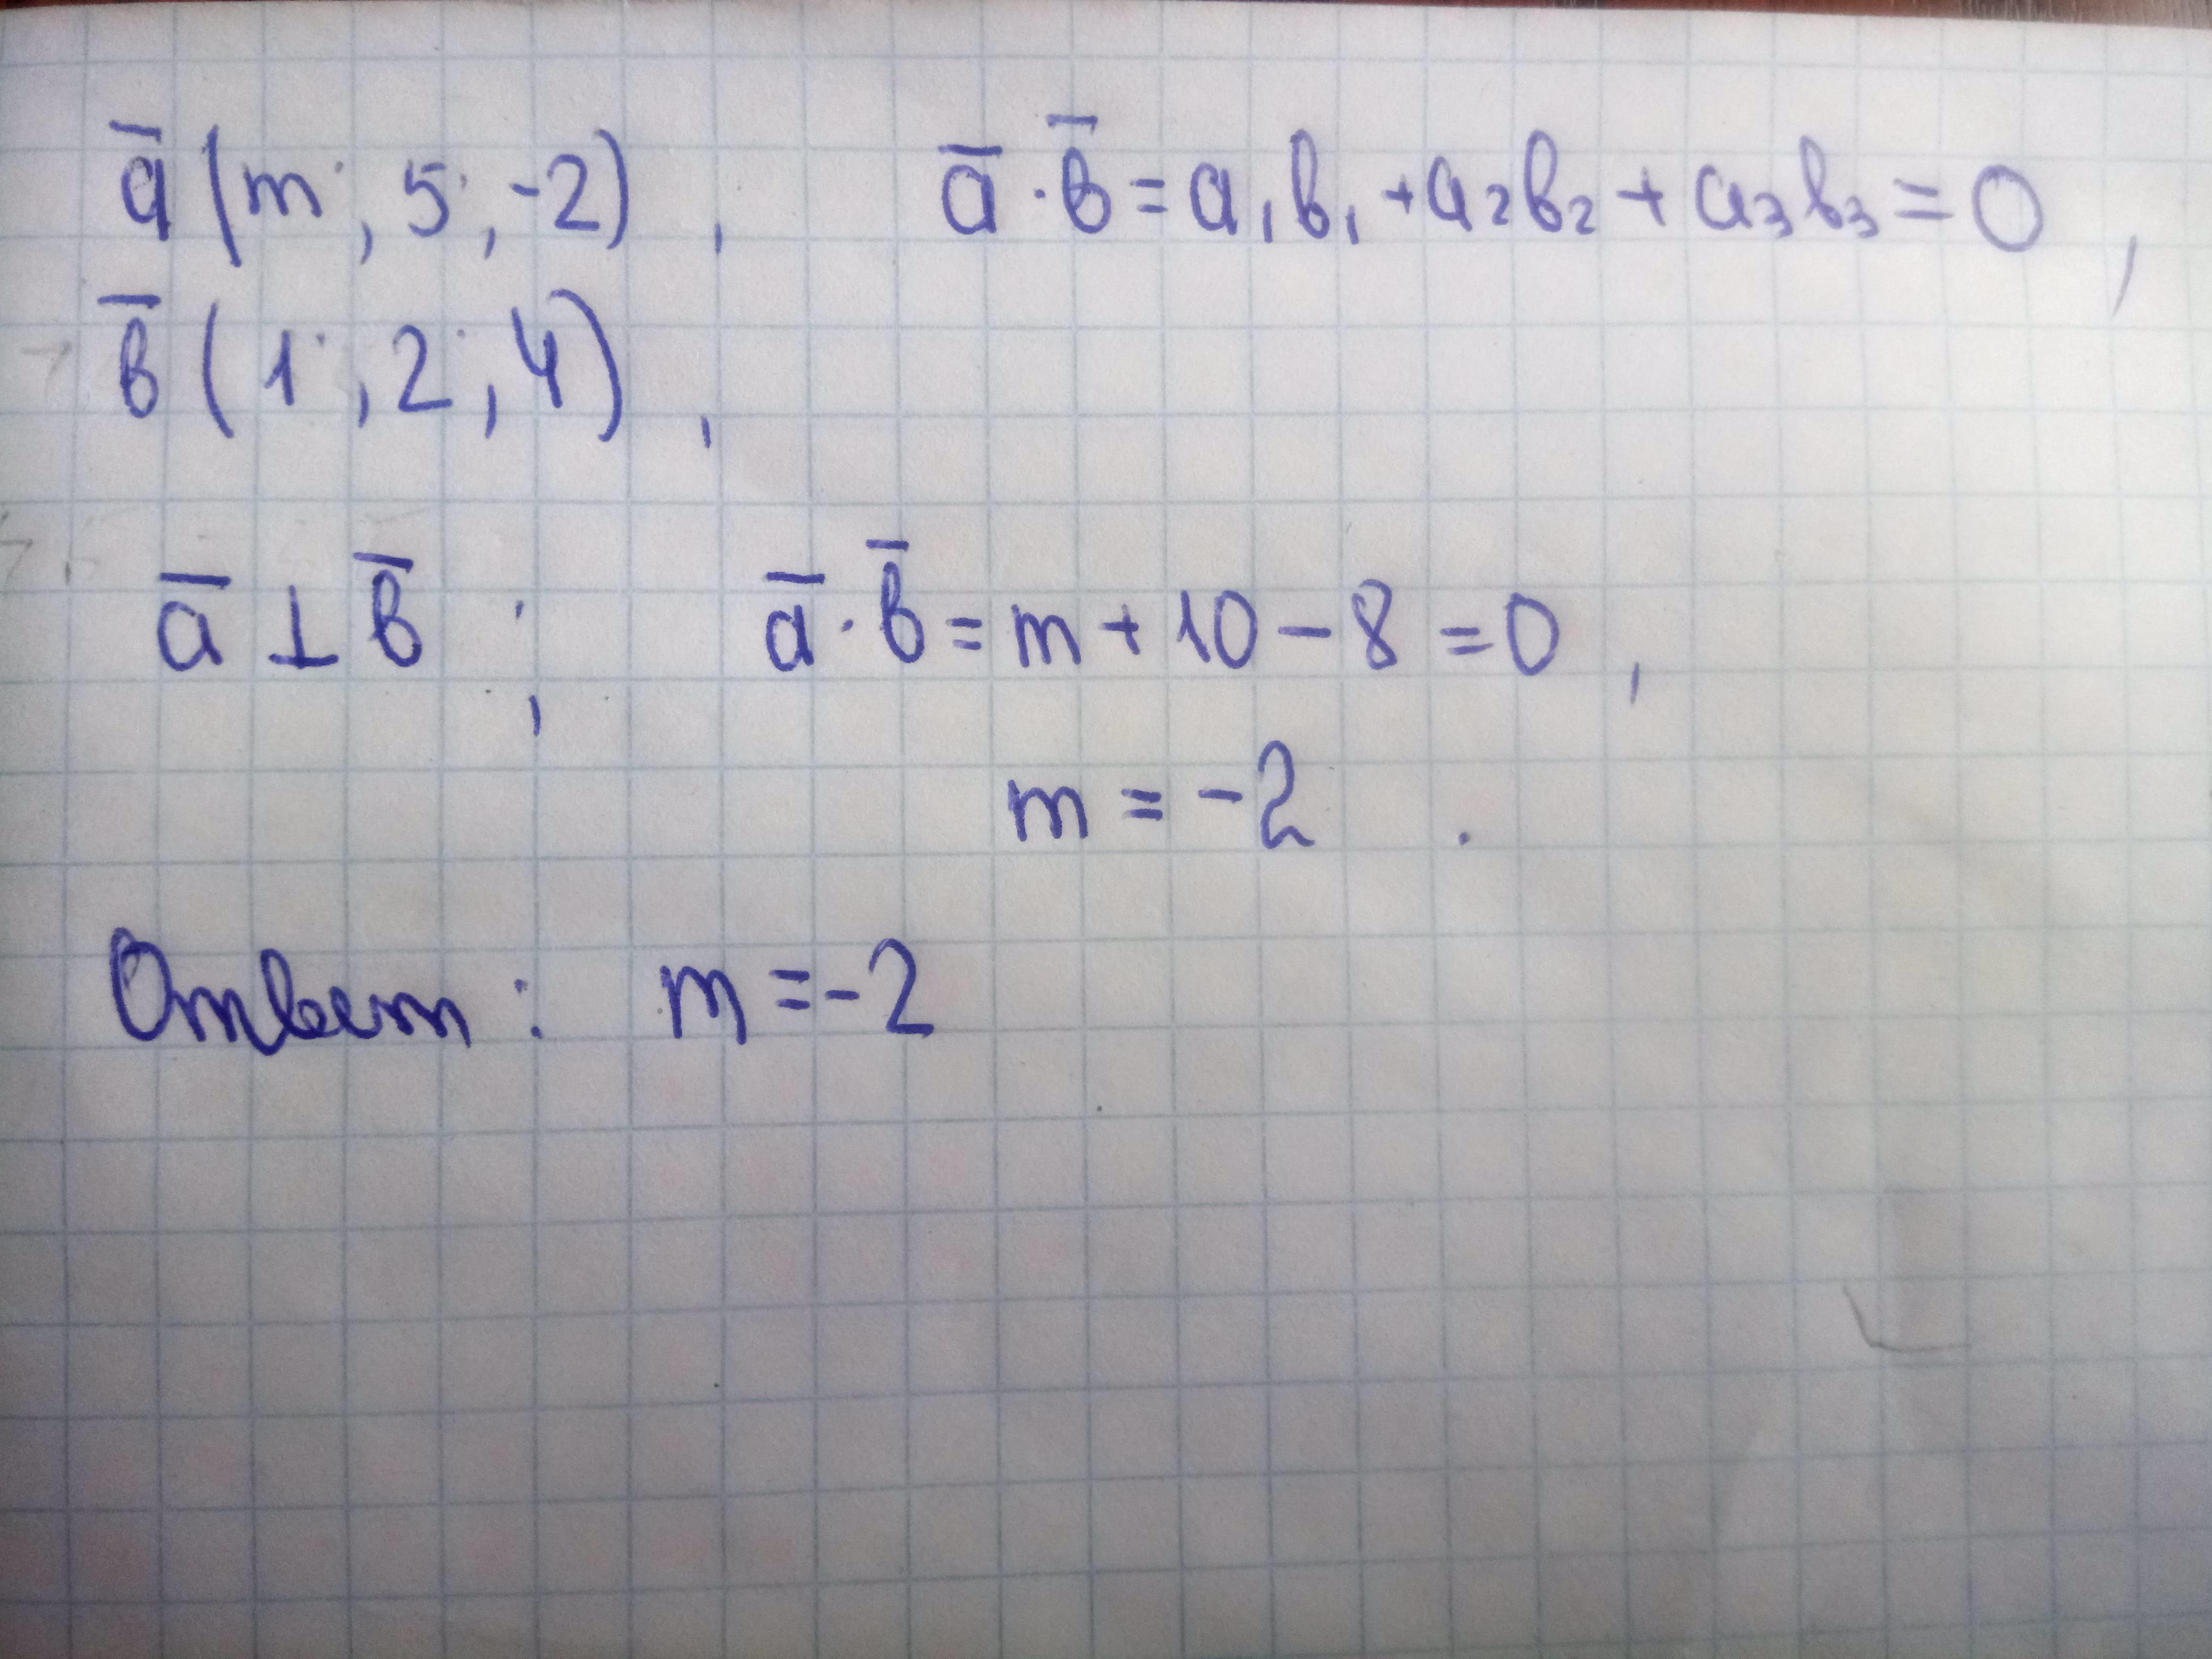 a̅ (m; 5; -2), a̅ · b̅ = a₁b₁ + a₂b₂ + a₃b₃ = 0,
b̅ (1; 2; 4),
a̅ ⊥ b̅; a̅ · b̅ = m + 10 - 8 = 0,
m = -2.
Ответ: m = -2